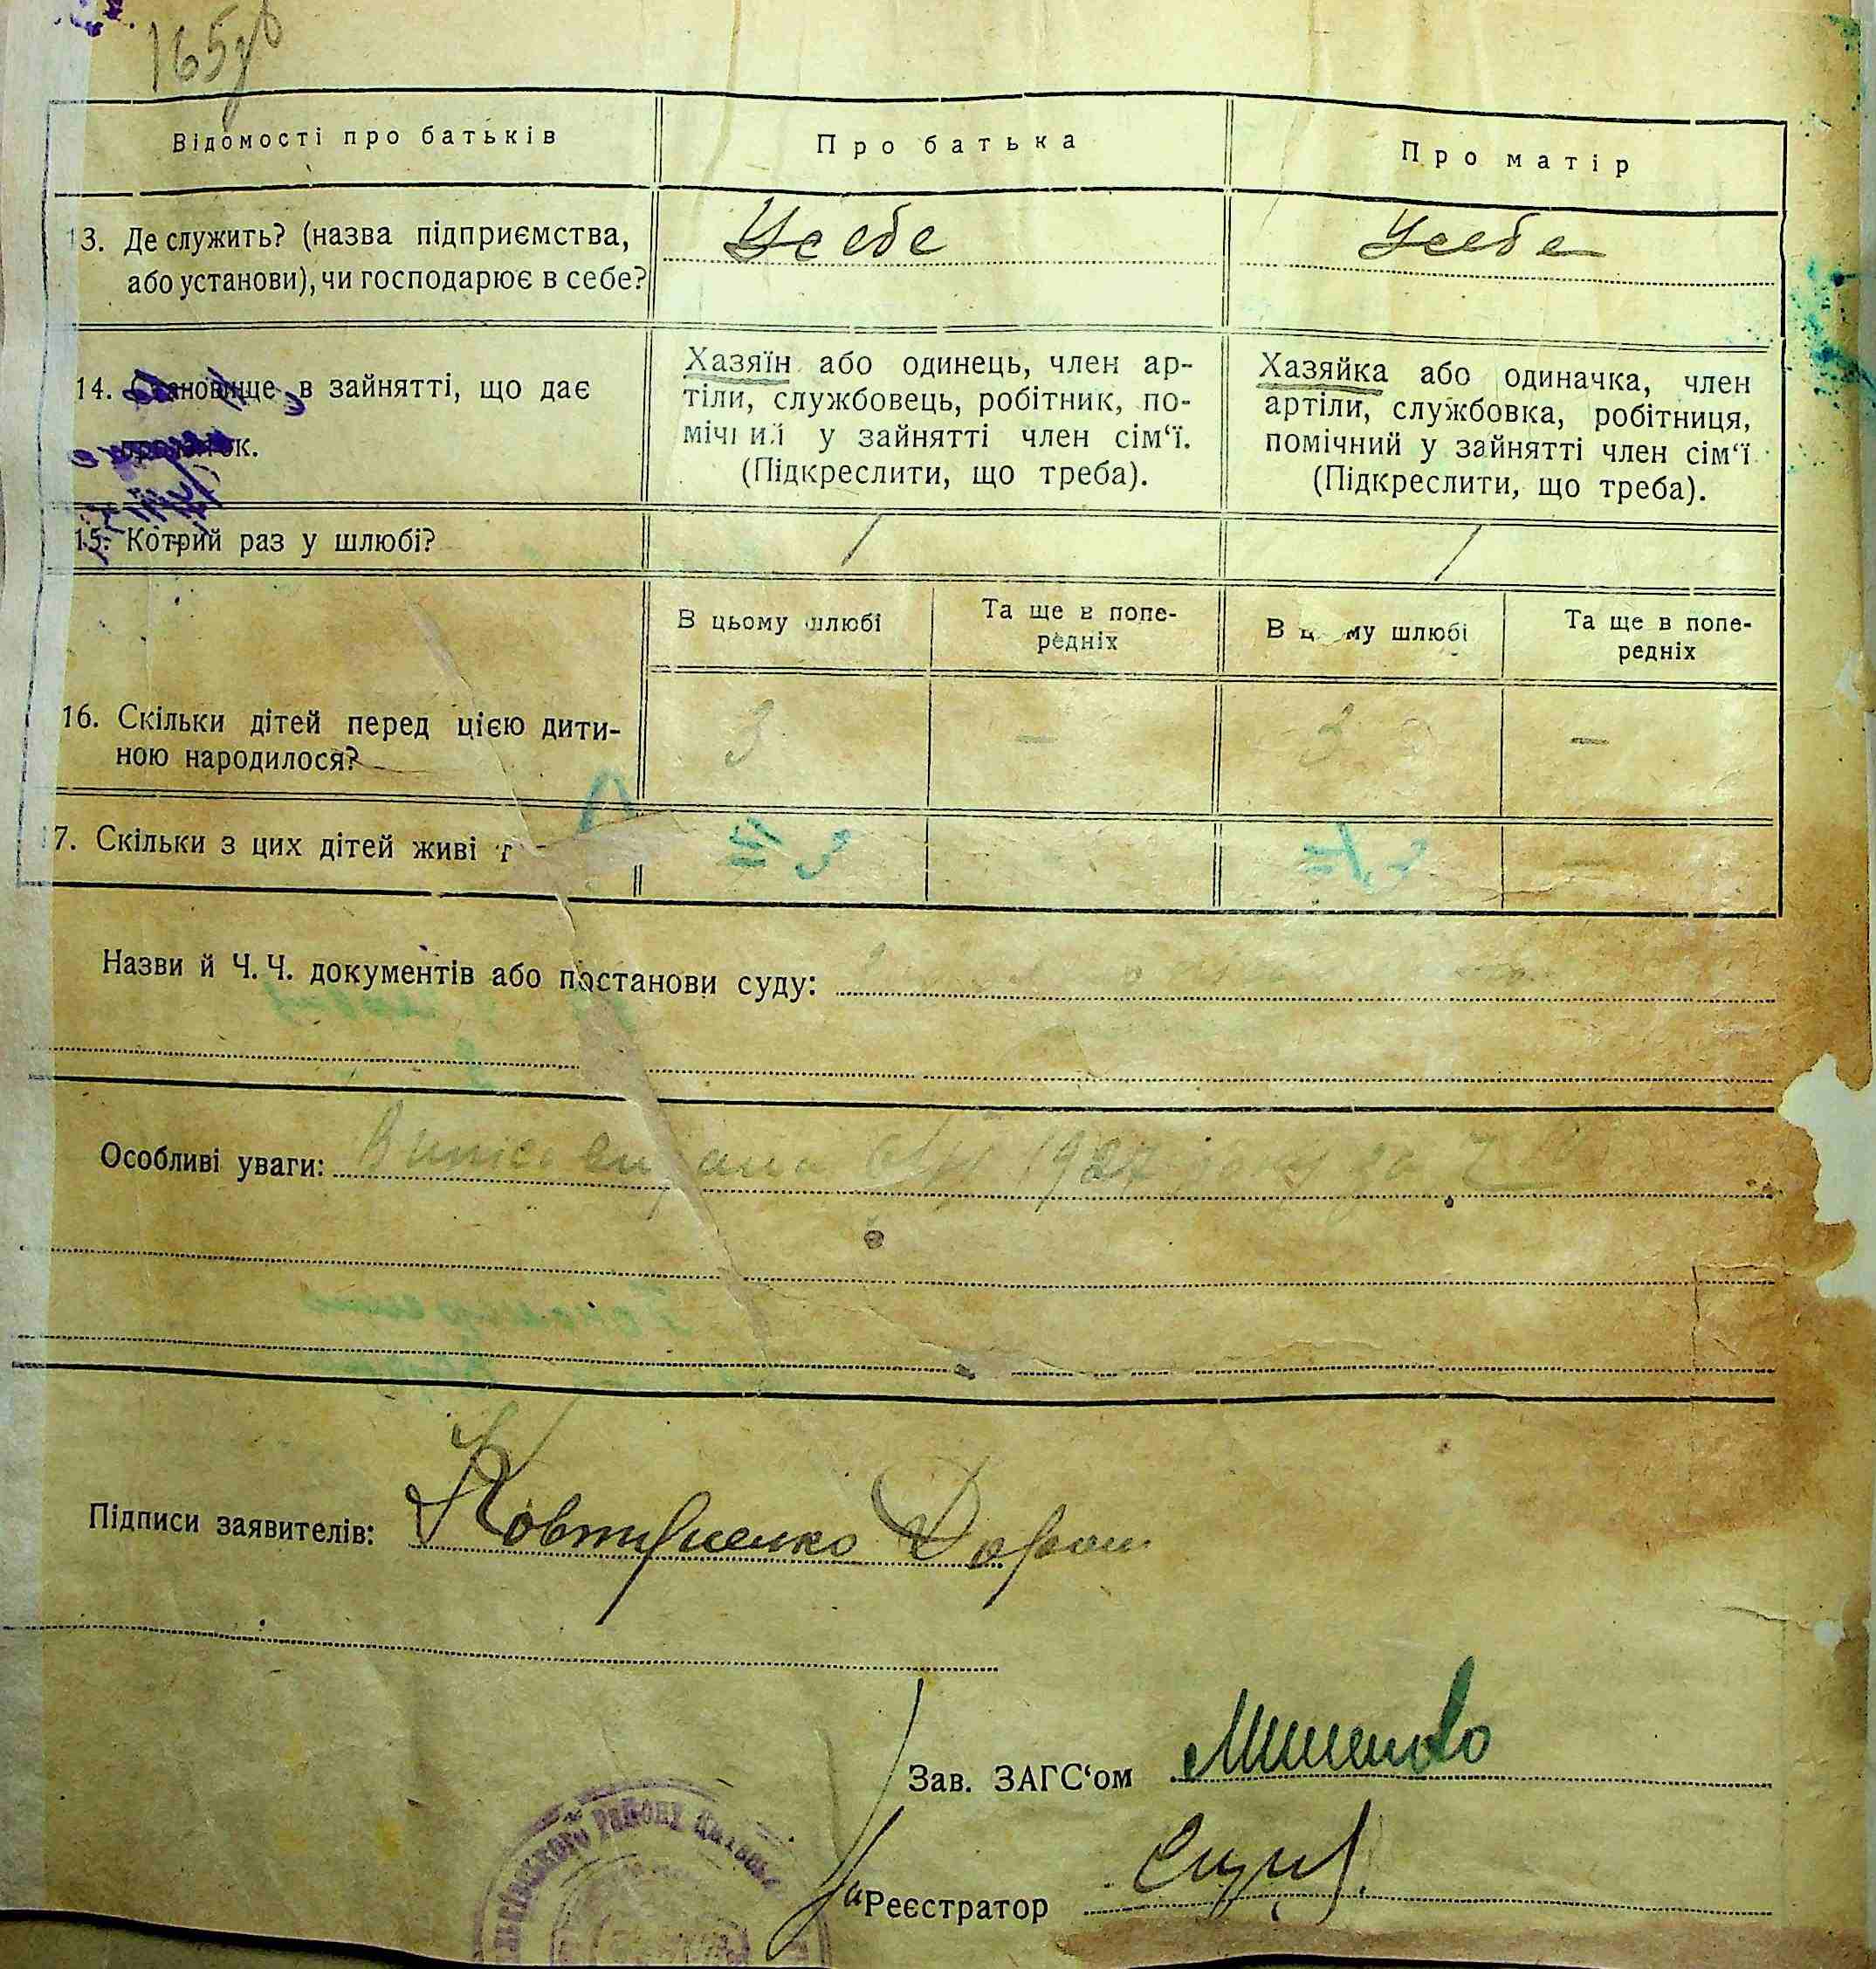 165
Відомості про батьків
Про батька
Про матір
13. Де служить? (назва підприємства,
або установи), чи господарює в себе?
У себе
У себе
14. Становище в зайнятті, що дає
прожиток.
Хазяїн або одинець, член ар-
тіли, службовець, робітник, по-
мічний у зайнятті член сім‘ї.
(Підкреслити, що треба).
Хазяйка або одиначка, член
артіли, службовка, робітниця,
помічний у зайнятті член сім‘ї
(Підкреслити, що треба).
15. Котрий раз у шлюбі?
/
/
В цьому шлюбі
Та ще в попе-
редніх
В цьому шлюбі
Та ще в попе-
редніх
16. Скільки дітей перед цією дити-
ною народилося?
3
—
3
—
17. Скільки з цих дітей живі
Назви й Ч. Ч. документів або постанови суду:
Особливі уваги: 1927 року за
Підписи заявителів: Ковтуненко
Зав. ЗАГС‘ом
Реєстратор
району